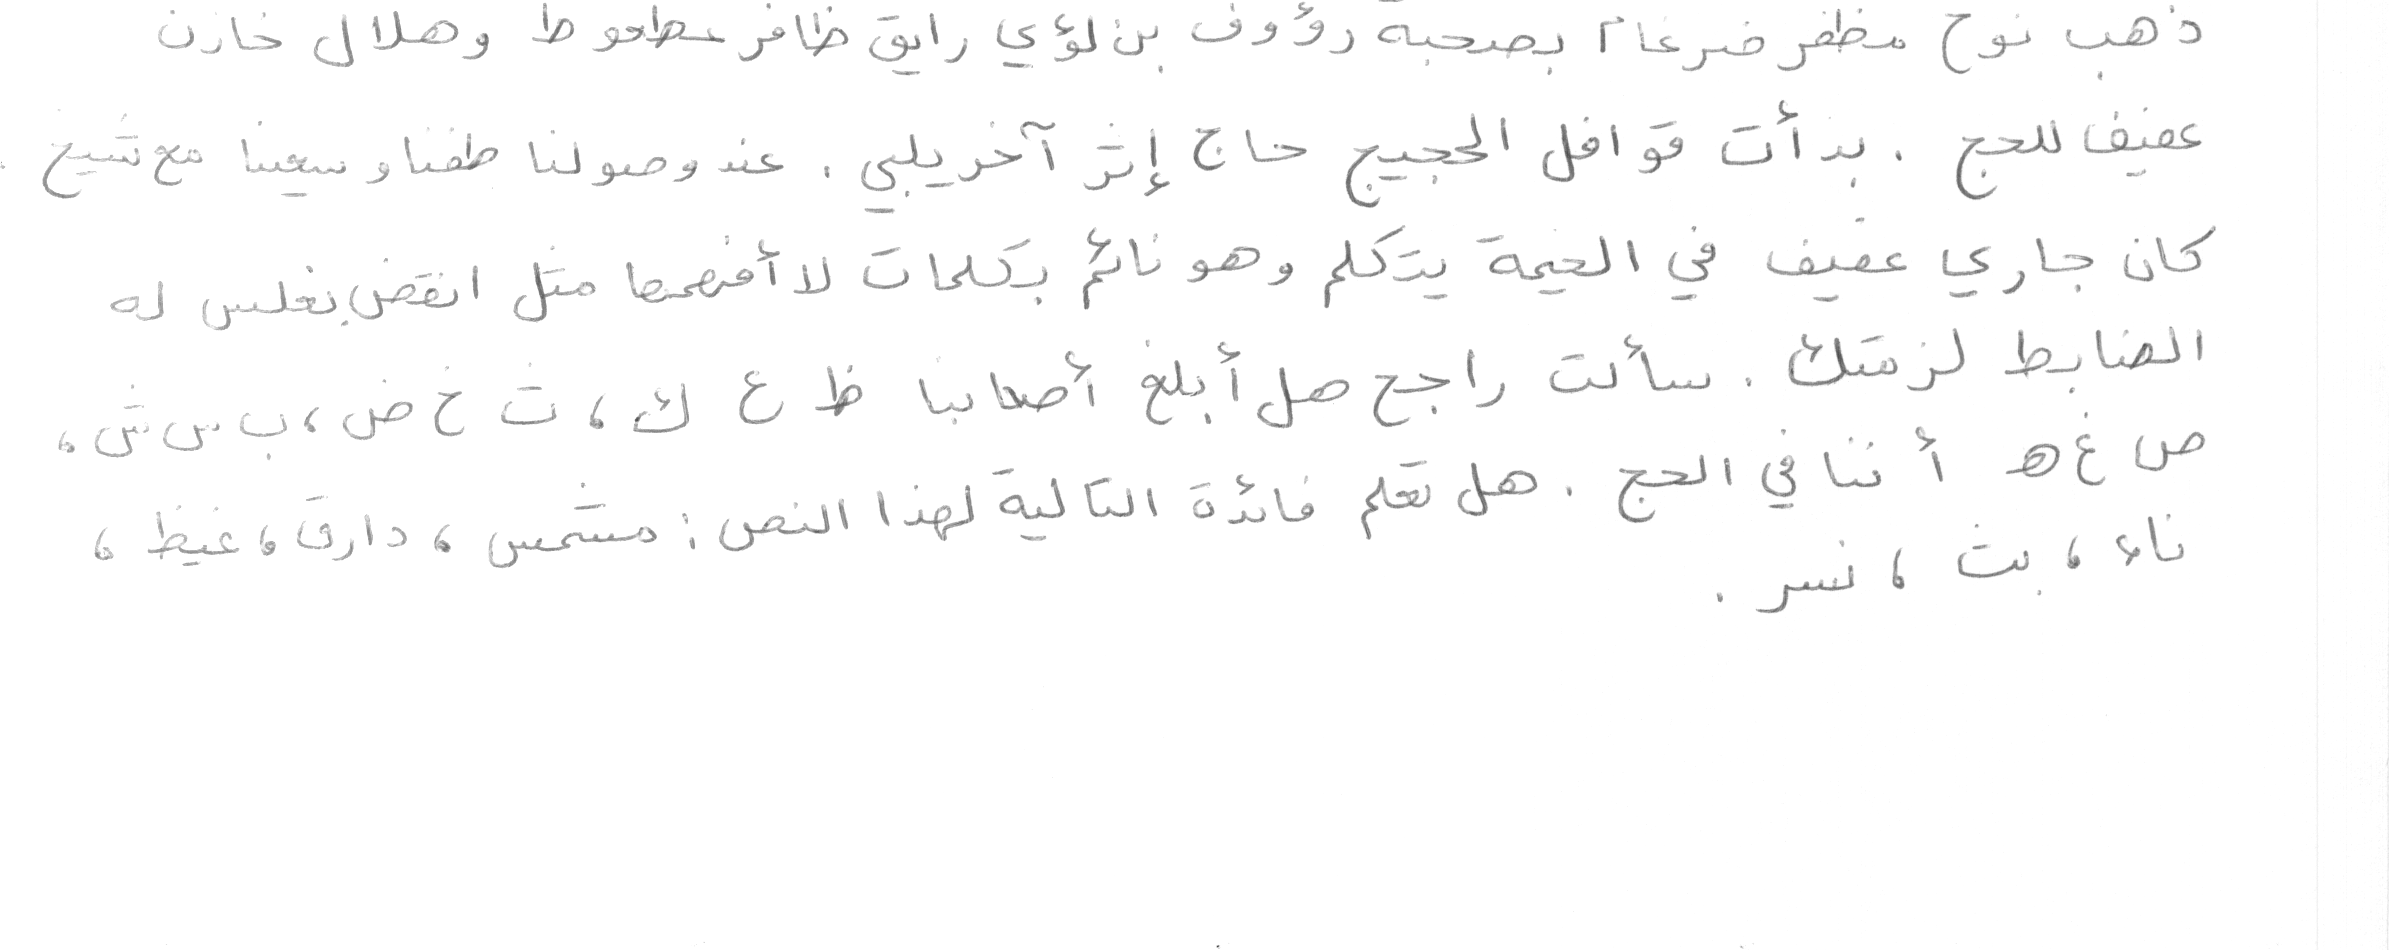 ذهب نوح مظفر ضرغام بصحبة رؤوف بن لؤي رايق ظافر عطعوط وهلال خازن
عفيف للحج . بدأت قوافل الحجيج حاج إثر آخر يلبي . عند وصولنا طفنا وسعينا مع شيخ .
كان جاري عفيف في الخيمة يتكلم وهو نائم بكلمات لا أفهمها مثل انقض بغلس له
الضابط لزمتك . سألت راجح هل أبلغ أصحابنا ظ ع ك ، ث خ ض ، ب س ش ،
ص غ ه أننا في الحج . هل تعلم فائدة التالية لهذا النص : مشمس ، دارق ، غيظ ،
ناء ، بث ، نسر .